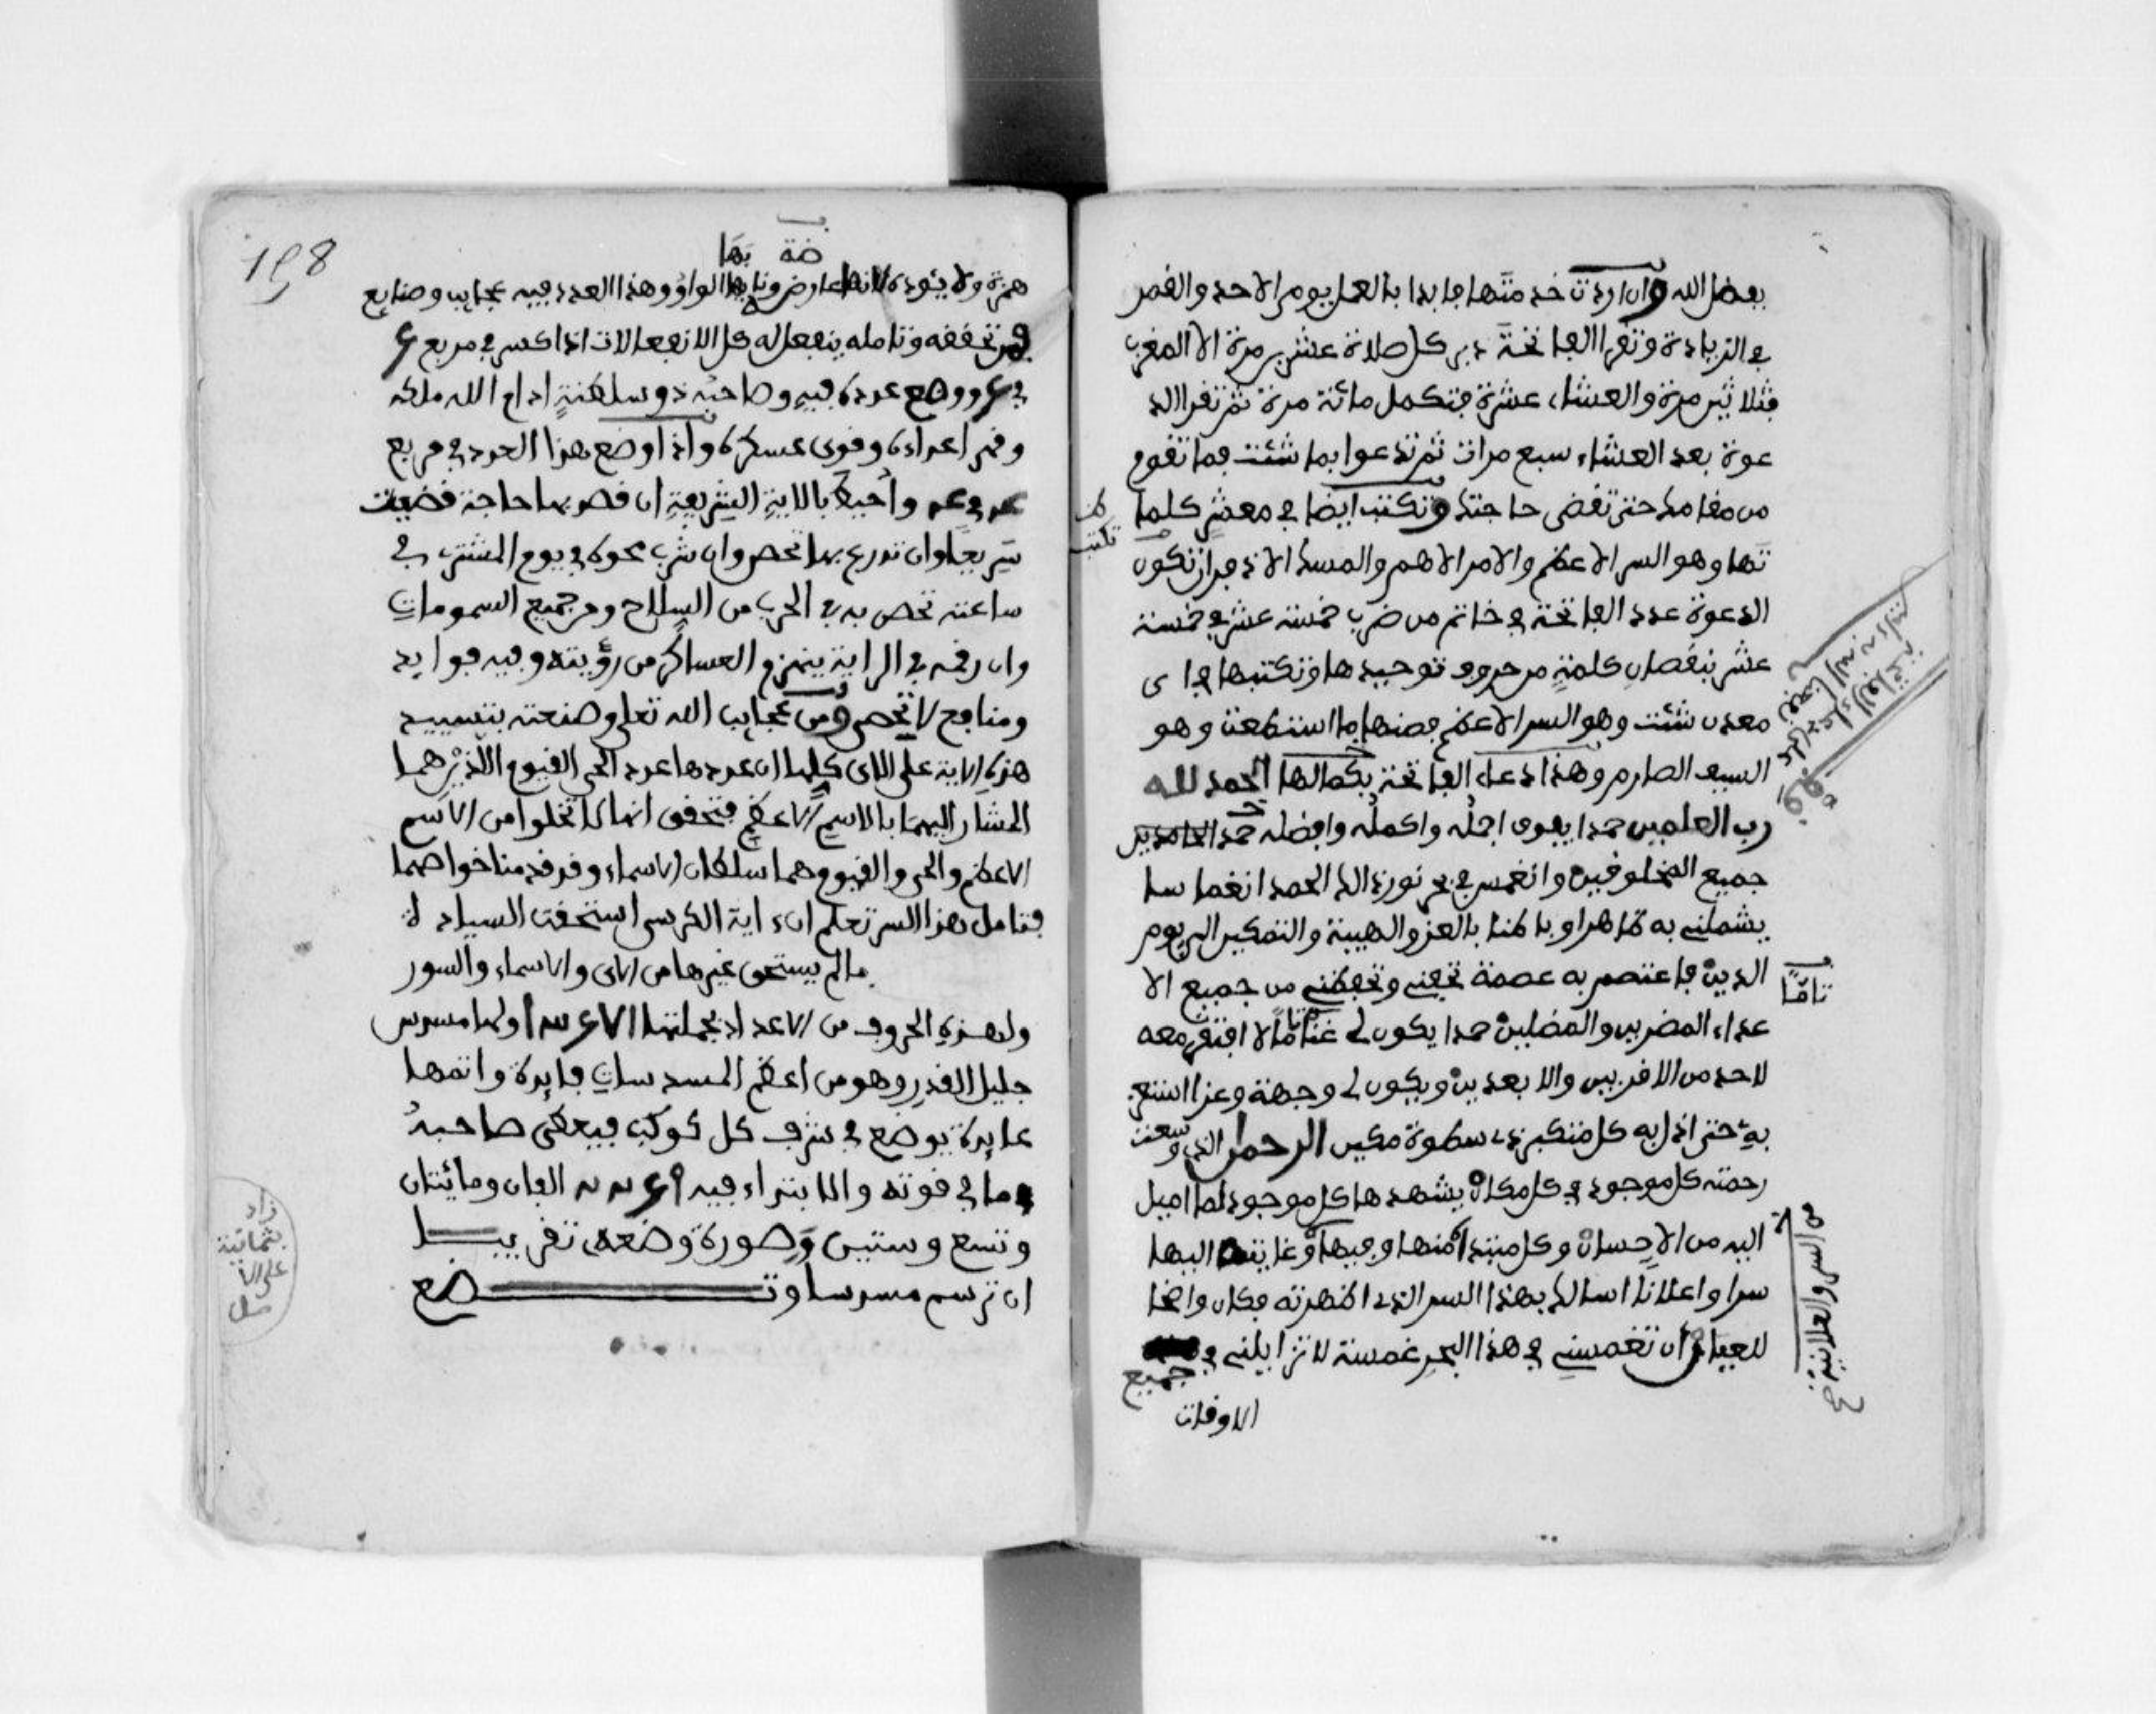 بفضل الله وان اردت خدمتها فابدا بالعمل يوم الاحد والقمر
في الزيادة وتقرا الفاتحة دبر كل صلاة عشرين مرة الا المغرب
فثلاثين مرة والعشاء عشرة فتكمل مائة مرة ثم تقرا الد
عوة بعد العشاء سبع مرات ثم تدعوا بما شئت فما تقوم
من مقامك حتى تقضى حاجتك وتكتب ايضا في معشر كلما
تها وهو السر الاعظم والامر الاهم والمسك الاذفر ان تكون
الدعوة عدد الفاتحة في خاتم من ضرب خمسة عشر في خمسة
عشر بنقصان كلمة من حروف توحيدها وتكتبها في اى
معدن شئت وهو السر الاعظم فصنها ما استطعت وهو
السيف الصارم وهذا دعاء الفاتحة بكمالها الحمد لله
رب العلمين حمدا يفوق اجله واكمله وافضله حمد الحامدين
جميع المخلوفين وانغمس في بحر نور ذلك الحمد انغماسا
يشملني به ظاهرا وباطنا بالعز والهيبة والتمكين الى يوم
الدين فاعتصم به عصمة تحفني وتحفظني من جميع الا
تامّا
عداء المضرين والمضلين حمدا يكون لى غنا تاما لا افتقر معه
لاحد من الاقربين والابعدين ويكون لى وجهة وعزا استعن
به حتى اذل به كل متكبر ذى سطوة مكين الرحمن الذى وسعت
رحمته كل موجود في كل مكان يشهدها كل موجود لما اميل
اليه من الاحسان وكل مبتدا منها وفيها وغايتها اليها
من السر والعلانية
سرا واعلانا اسالك بهذا السر الذى اظهرته فكان واضحا
للعيان ان تغمسني في هذا البحر غمسة لا تزايلني في
جميع
الاوقات
198
ضة بها
همزة ولا يئوده لانها عارض ونابها الواو وهذا العدد فيه عجايب وصنايع
فمن تحققه وتامله ينفعل له كل الانفعالات اذا كسر في مربع ۴
في ۴ ووضع عدده فيه وصاحبه ذو سلطنة ادام الله ملكه
وقهر اعداءه وقوى عسكره واذا وضع هذا العدد في مربع
وأحيط بالاية الشريفة ان قصد بها حاجة قضيت
سريعا وان تدرع بها تحصن وان شرب محوه في يوم المشترى في
ساعته تحصن به في الحرب من السلاح ومن جميع السمومات
وان رقم في الراية ينهزم العساكر من رؤيته وفيه فوايد
ومنافع لا تحصى ومن عجايب الله تعلى وصنعته بتسييد
هذه الاية على الاى كلها ان عددها عدد الحى القيوم اللذين هما
المشار اليهما بالاسم الاعظم فتحقق انها لا تخلوا من الاسم
الاعظم والحى والقيوم وهما سلطان الاسماء وقد قدمنا خواصهما
فتامل هذا السر تعلم ان ءاية الكرسى استحقت السيادة
مالم يستحق غيرها من الاى والاسماء والسور
ولهذه الحروف من الاعداد بجملتها ولها مسدس
جليل القدر وهو من اعظم المسدسات فايدة واتمها
عايدة يوضع في شرف كل كوكب فيعطى صاحبه
ما في قوته والابتداء فيه الفان ومائتان
وتسع وستين وصورة وضعه تقريبا
ان ترسم مسدسا وتضع
زاد
بثمانية
على الا
صل